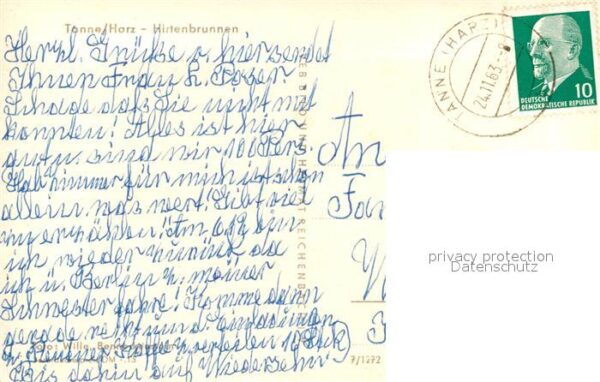 Tanne/Harz - Hirtenbrunnen
Herzl. Grüße v. hier sendet
Ihnen Frau K.
Schade daß Sie nicht mit
konnten! Alles ist hier
gut u. sind wir 100 Pers.
Hab Zimmer für mich ist schon
allein was wert! Gibt viel
zu erzählen! Am 6.12. bin
ich wieder zurück da
ich ü. Berlin z. meiner
Schwester fahre! Komme dann
gerade recht und Einladungen
z. Kaffee verteilen
Bis dahin auf Wiedersehn
An
Foto: Willy
7/1272
VEB BILD UND HEIMAT REICHENBACH
TANNE (HARZ)
24.11.63.-8
10
DEUTSCHE
DEMOKRATISCHE REPUBLIK
privacy protection
Datenschutz